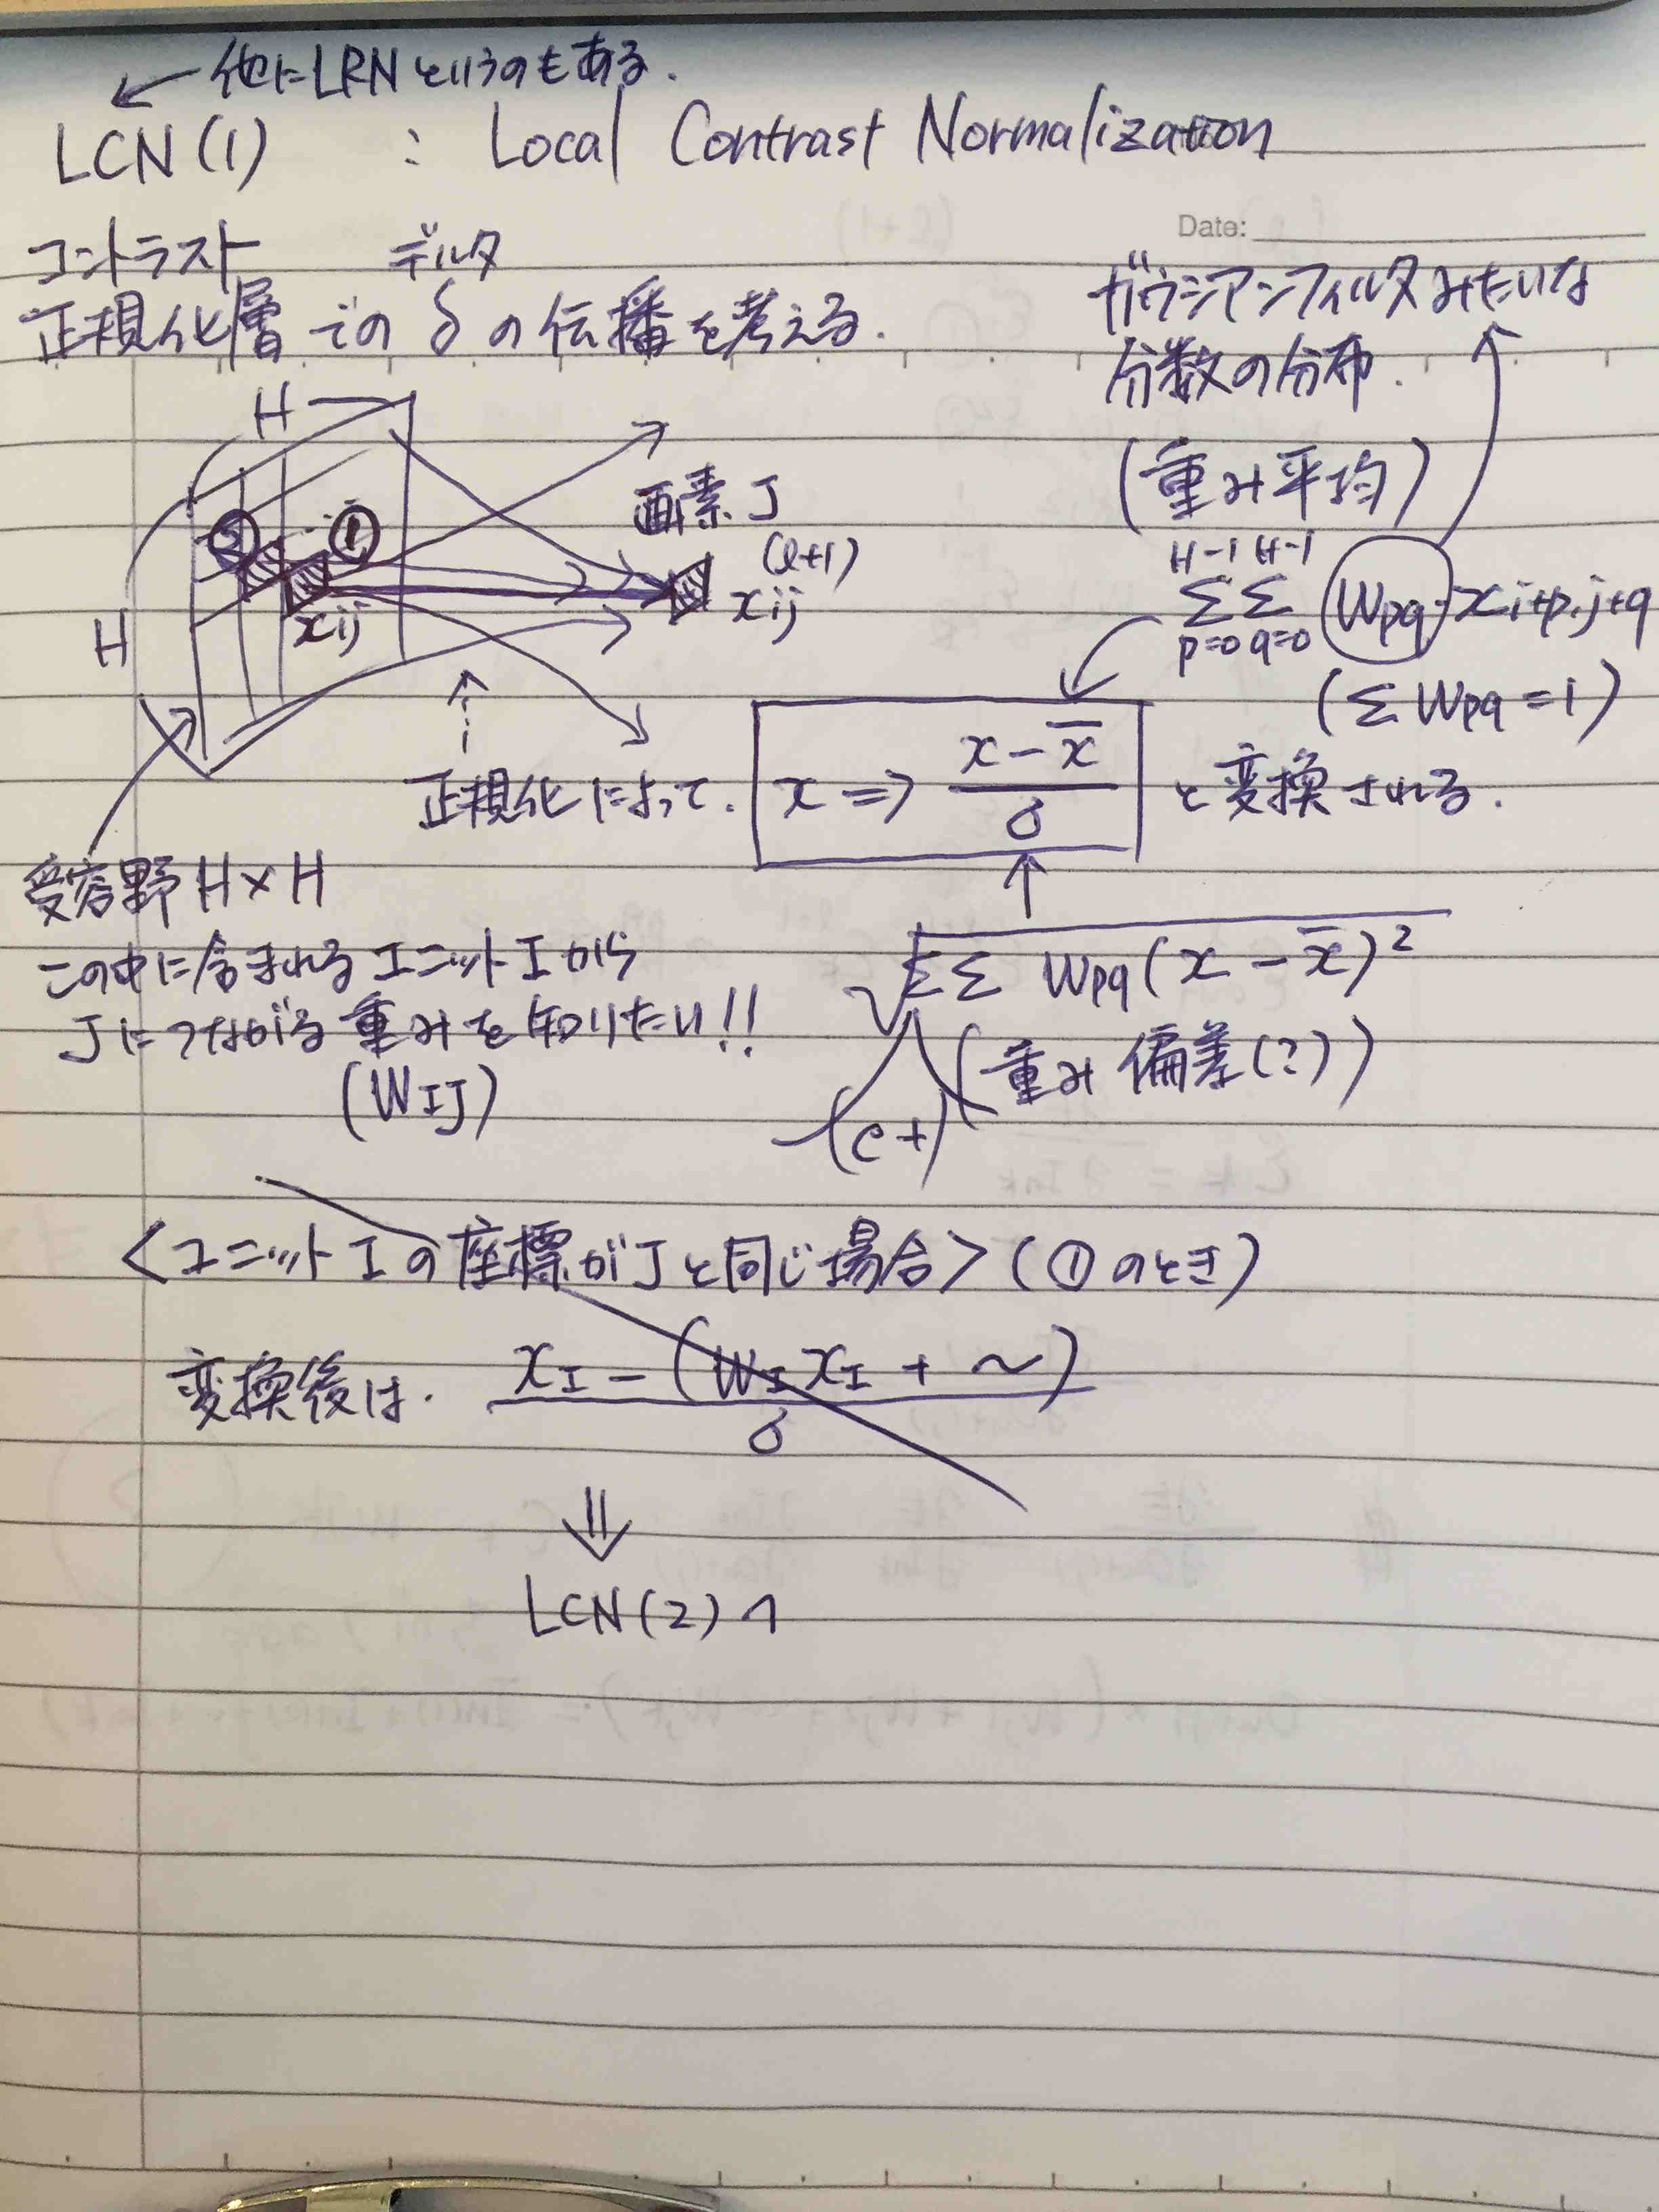 他にLRNというのもある.
LCN(1) : Local Contrast Normalization
Date:
コントラスト デルタ
正規化層でのδの伝播を考える.
ガウシアンフィルタみたいな
分数の分布.
(重み平均)
H
H
② ①
xij
画素J
xij(l+1)
H-1 H-1
ΣΣ Wpq・xi+p,j+q
p=0 q=0
(ΣWpq=1)
正規化によって. x ⇒ (x - x̄)/σ と変換される.
受容野 H×H
この中に含まれるユニットIから
Jにつながる重みを知りたい!!
(WIJ)
√ΣΣ Wpq(x - x̄)²
(重み偏差(?))
(c+)
<ユニットIの座標がJと同じ場合>(①のとき)
変換後は. (xI - (WI xI + ~))/σ
⇓
LCN(2)へ